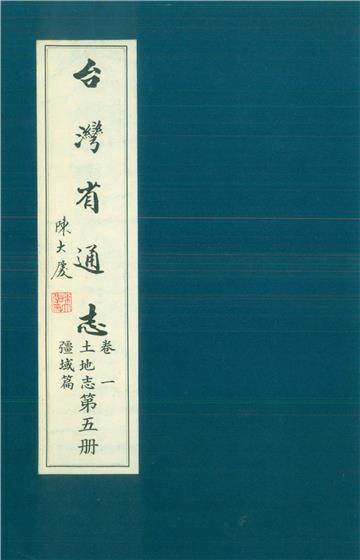 台灣省通志
陳大慶
卷一
土地志第五册
疆域篇